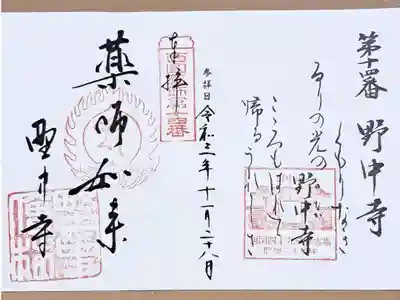 第十四番 野中寺
くもりなき
るりの光の
野中寺
こころもはれて
帰るうれしさ
参拝日 令和三年十一月二十八日
奉拝
西国薬師第十四番
薬師如来
野中寺